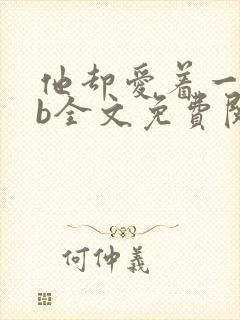 他却爱着一
b全文免費
何仲義